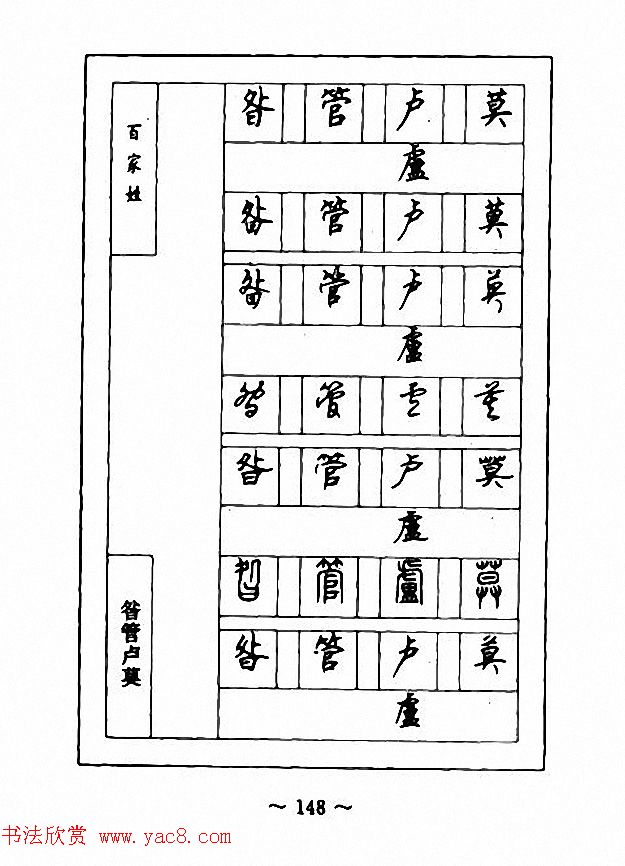 百家姓
昝管卢莫
昝 管 卢 莫
盧
昝 管 卢 莫
昝 管 卢 莫
盧
昝 管 卢 莫
昝 管 卢 莫
盧
昝 管 盧 莫
昝 管 卢 莫
盧
～ 148 ～
书法欣赏 www.yac8.com